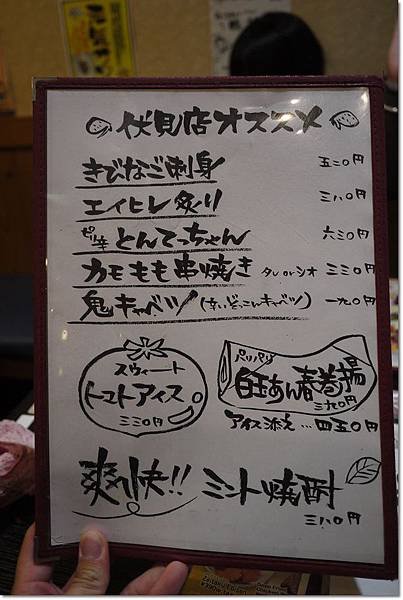 伏見店オススメ
きびなご刺身 五二〇円
エイヒレ炙り 三八〇円
ピリ辛とんてっちゃん 六三〇円
カモもも串焼き タレorシオ 三三〇円
鬼キャベツ(辛いどっこんキャベツ) 一九〇円
スウィート
トマトアイス
三三〇円
パリパリ
白玉あん春巻揚
三九〇円
アイス添え…四五〇円
爽快!! ミント焼酎
三八〇円